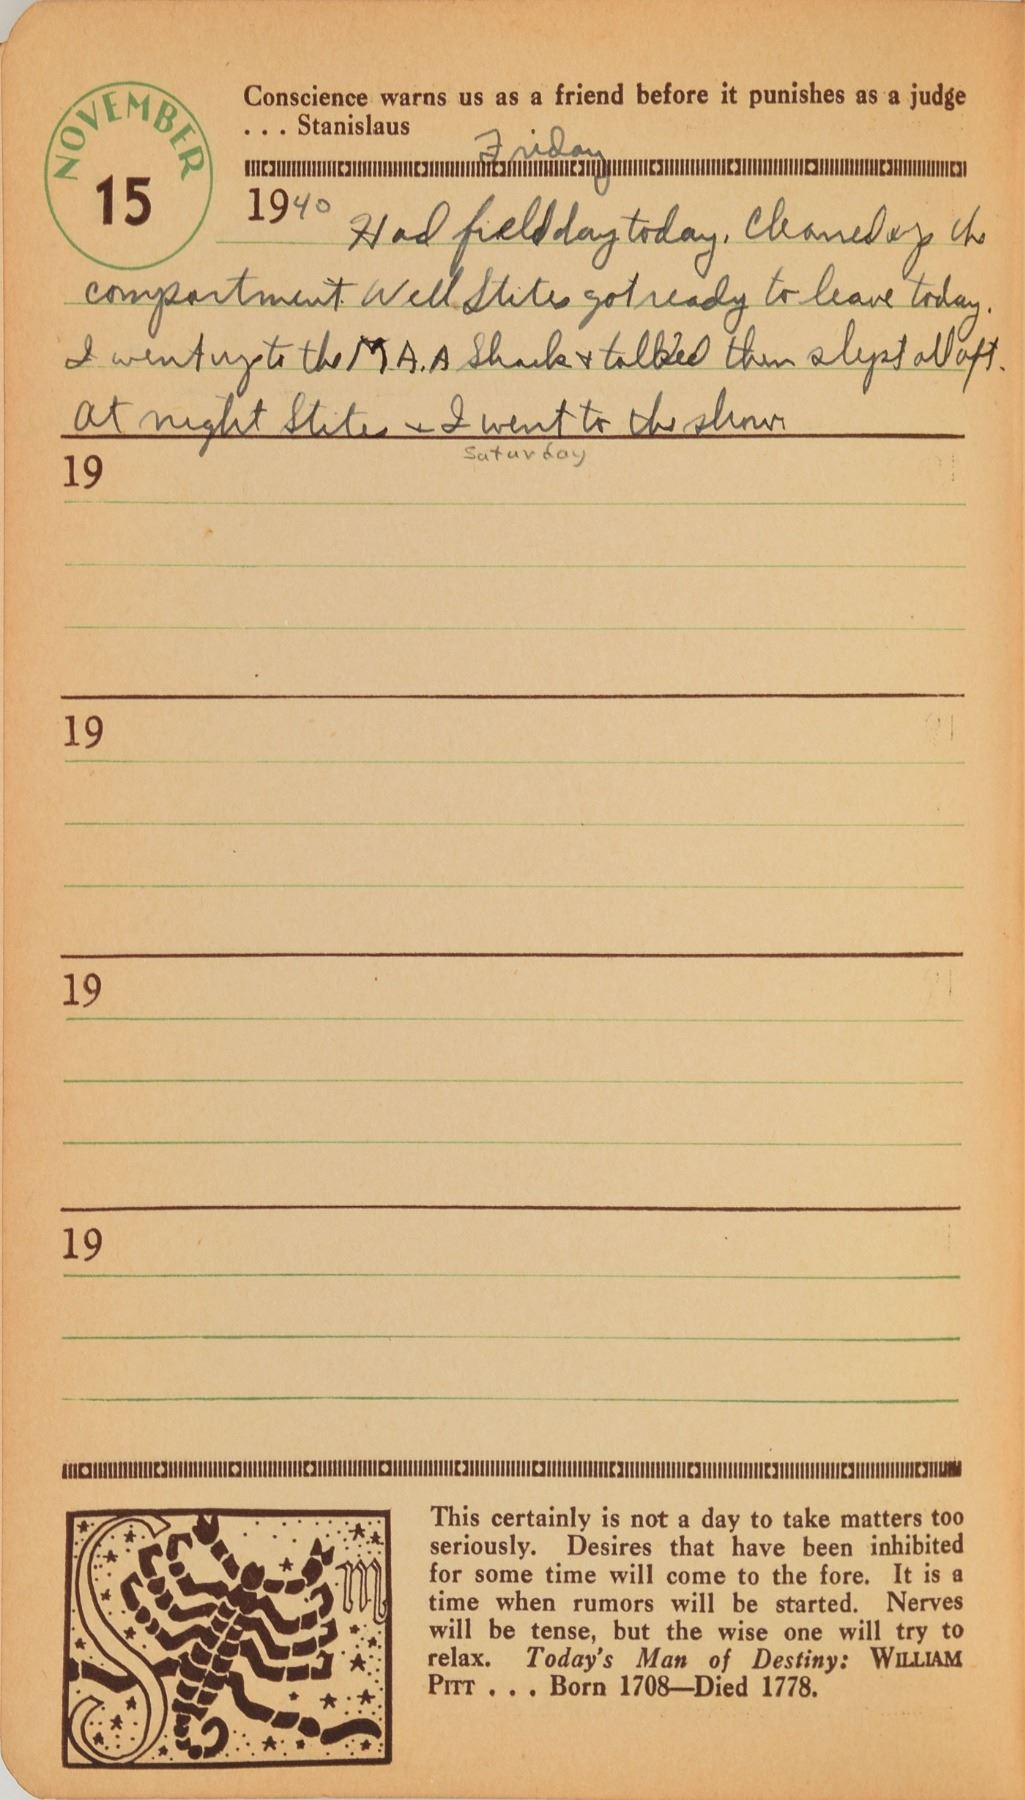 NOVEMBER
15
Conscience warns us as a friend before it punishes as a judge
. . . Stanislaus
Friday
1940 Had field day today. Cleaned up the
compartment. Well Stites got ready to leave today.
I went up to the M A.A Shack & talked then slept all aft.
At night Stites & I went to the show
Saturday
19
19
19
19
This certainly is not a day to take matters too
seriously. Desires that have been inhibited
for some time will come to the fore. It is a
time when rumors will be started. Nerves
will be tense, but the wise one will try to
relax. Today's Man of Destiny: WILLIAM
PITT . . . Born 1708—Died 1778.